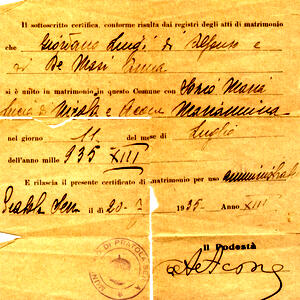 Il sottoscritto certifica, conforme risulta dai registri degli atti di matrimonio
che Giordano Luigi di Alfonso e
di De Masi Anna
si è unito in matrimonio in questo Comune con Maria
di Nicola e Mariannina
nel giorno 11 del mese di Luglio
dell'anno mille 935 XIII
E rilascia il presente certificato di matrimonio per uso
Pratola Serra il di 20- 1935 Anno XIII
Il Podestà
DI PRATOLA SERRA